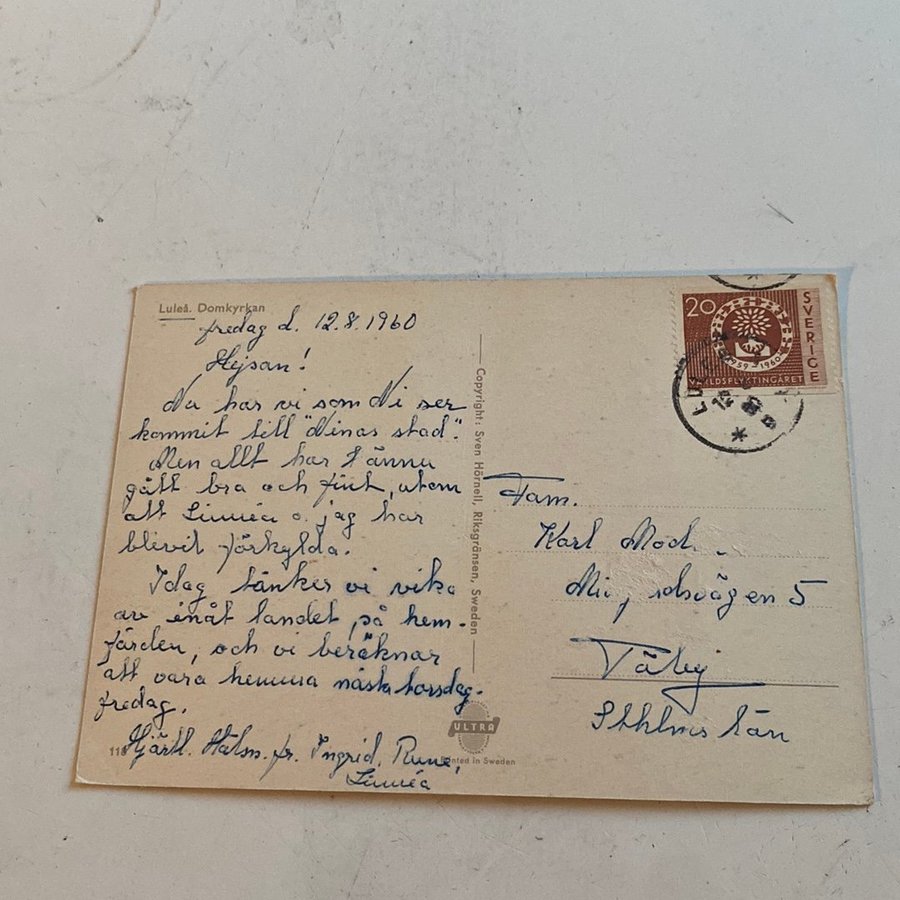 Luleå. Domkyrkan
fredag d. 12.8.1960
Hejsan!
Nu har vi som Ni ser
kommit till "Ninas stad".
Men allt har ännu
gått bra och fint, utom
att Linnéa o. jag har
blivit förkylda.
Idag tänker vi vika
av inåt landet, på hem-
färden, och vi beräknar
att vara hemma nästa torsdag-
fredag.
Hjärtl. Häls. fr. Ingrid, Rune,
Linnéa
118
Copyright: Sven Hörnell, Riksgränsen, Sweden
ULTRA
nted in Sweden
20
SVERIGE
1959-1960
RLDSFLYKTINGÅRET
Fam.
Karl
vägen 5
Täby
Sthlms län